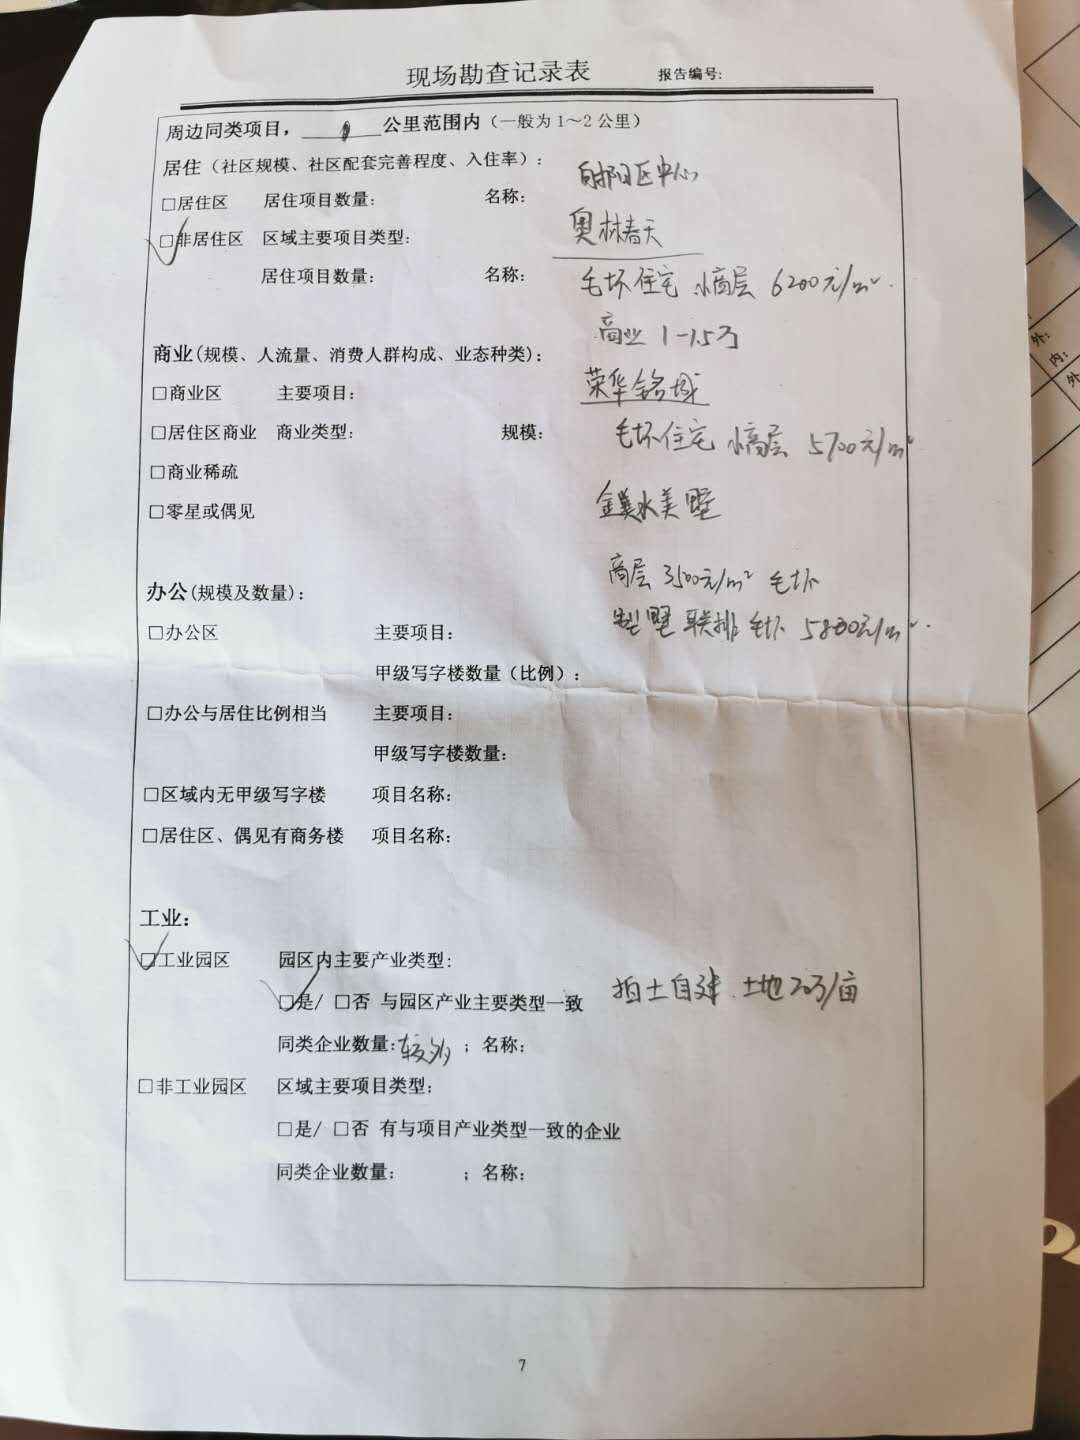 现场勘查记录表 报告编号:
周边同类项目，公里范围内（一般为1～2公里）
居住（社区规模、社区配套完善程度、入住率）：
区中心
□居住区 居住项目数量： 名称：
奥林春天
□非居住区 区域主要项目类型：
居住项目数量： 名称：
毛坯住宅 小高层 6200元/m².
商业 1-1.5万
商业(规模、人流量、消费人群构成、业态种类)：
荣华铭城
□商业区 主要项目：
□居住区商业 商业类型： 规模：
毛坯住宅 小高层 5700元/m²
□商业稀疏
□零星或偶见
水美墅
高层 3500元/m² 毛坯
办公(规模及数量)：
墅 联排 毛坯 5800元/m².
□办公区 主要项目：
甲级写字楼数量（比例）：
□办公与居住比例相当 主要项目：
甲级写字楼数量：
□区域内无甲级写字楼 项目名称：
□居住区、偶见有商务楼 项目名称：
工业：
□工业园区 园区内主要产业类型：
□是/ □否 与园区产业主要类型一致
拍土自建. 土地20万/亩
同类企业数量：较多 ；名称：
□非工业园区 区域主要项目类型：
□是/ □否 有与项目产业类型一致的企业
同类企业数量： ；名称：
7
外:
内:
外